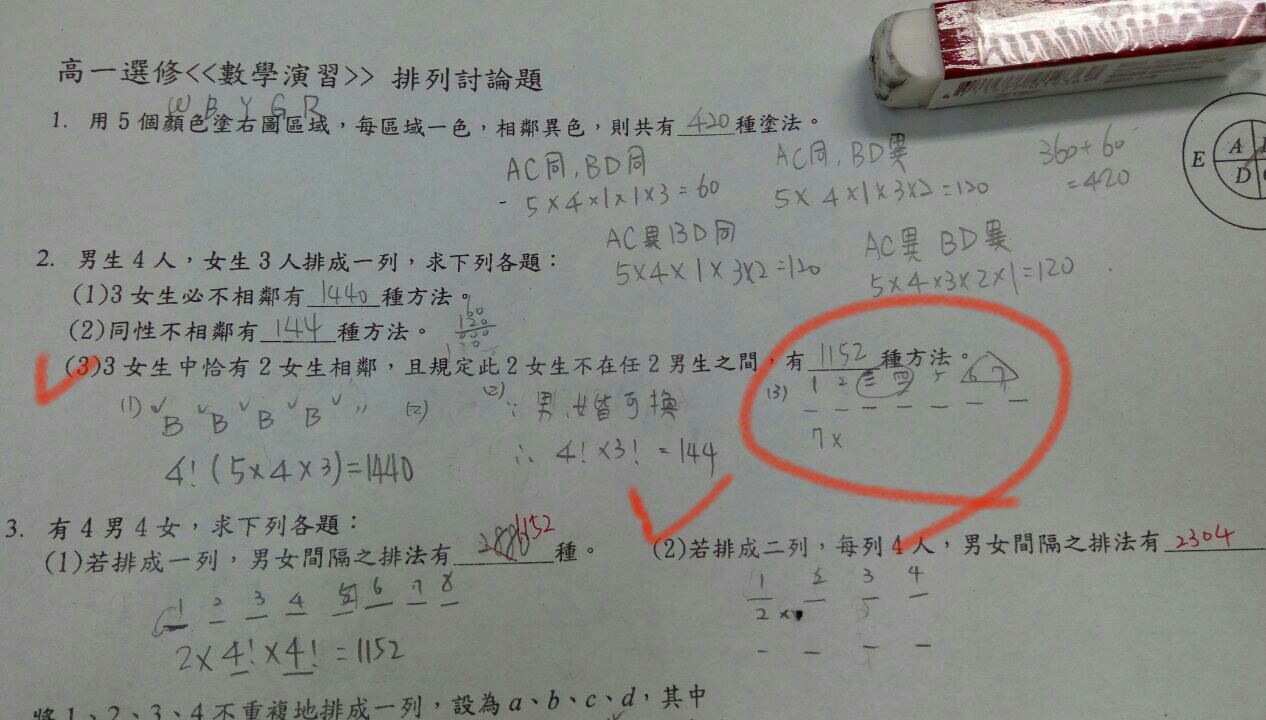 高一選修<<數學演習>> 排列討論題
W B Y G R
1. 用5個顏色塗右圖區域，每區域一色，相鄰異色，則共有 420 種塗法。
AC同，BD同
5×4×1×1×3=60
AC同，BD異
5×4×1×3×2=120
360+60
=420
E A D
AC異BD同
5×4×1×3×2=120
AC異 BD異
5×4×3×2×1=120
2. 男生4人，女生3人排成一列，求下列各題：
(1)3女生必不相鄰有 1440 種方法。
(2)同性不相鄰有 144 種方法。
(3)3女生中恰有2女生相鄰，且規定此2女生不在任2男生之間，有 1152 種方法。
(1) B B B B
4!(5×4×3)=1440
(2) ∵男,女皆可換
∴ 4!×3! =144
(3) 1 2 三 四 5 6 7
7×
3. 有4男4女，求下列各題：
(1)若排成一列，男女間隔之排法有 1152 種。
1 2 3 4 五 6 7 8
2×4!×4!=1152
(2)若排成二列，每列4人，男女間隔之排法有 2304
1 2 3 4
2×
將1、2、3、4不重複地排成一列，設為a、b、c、d，其中